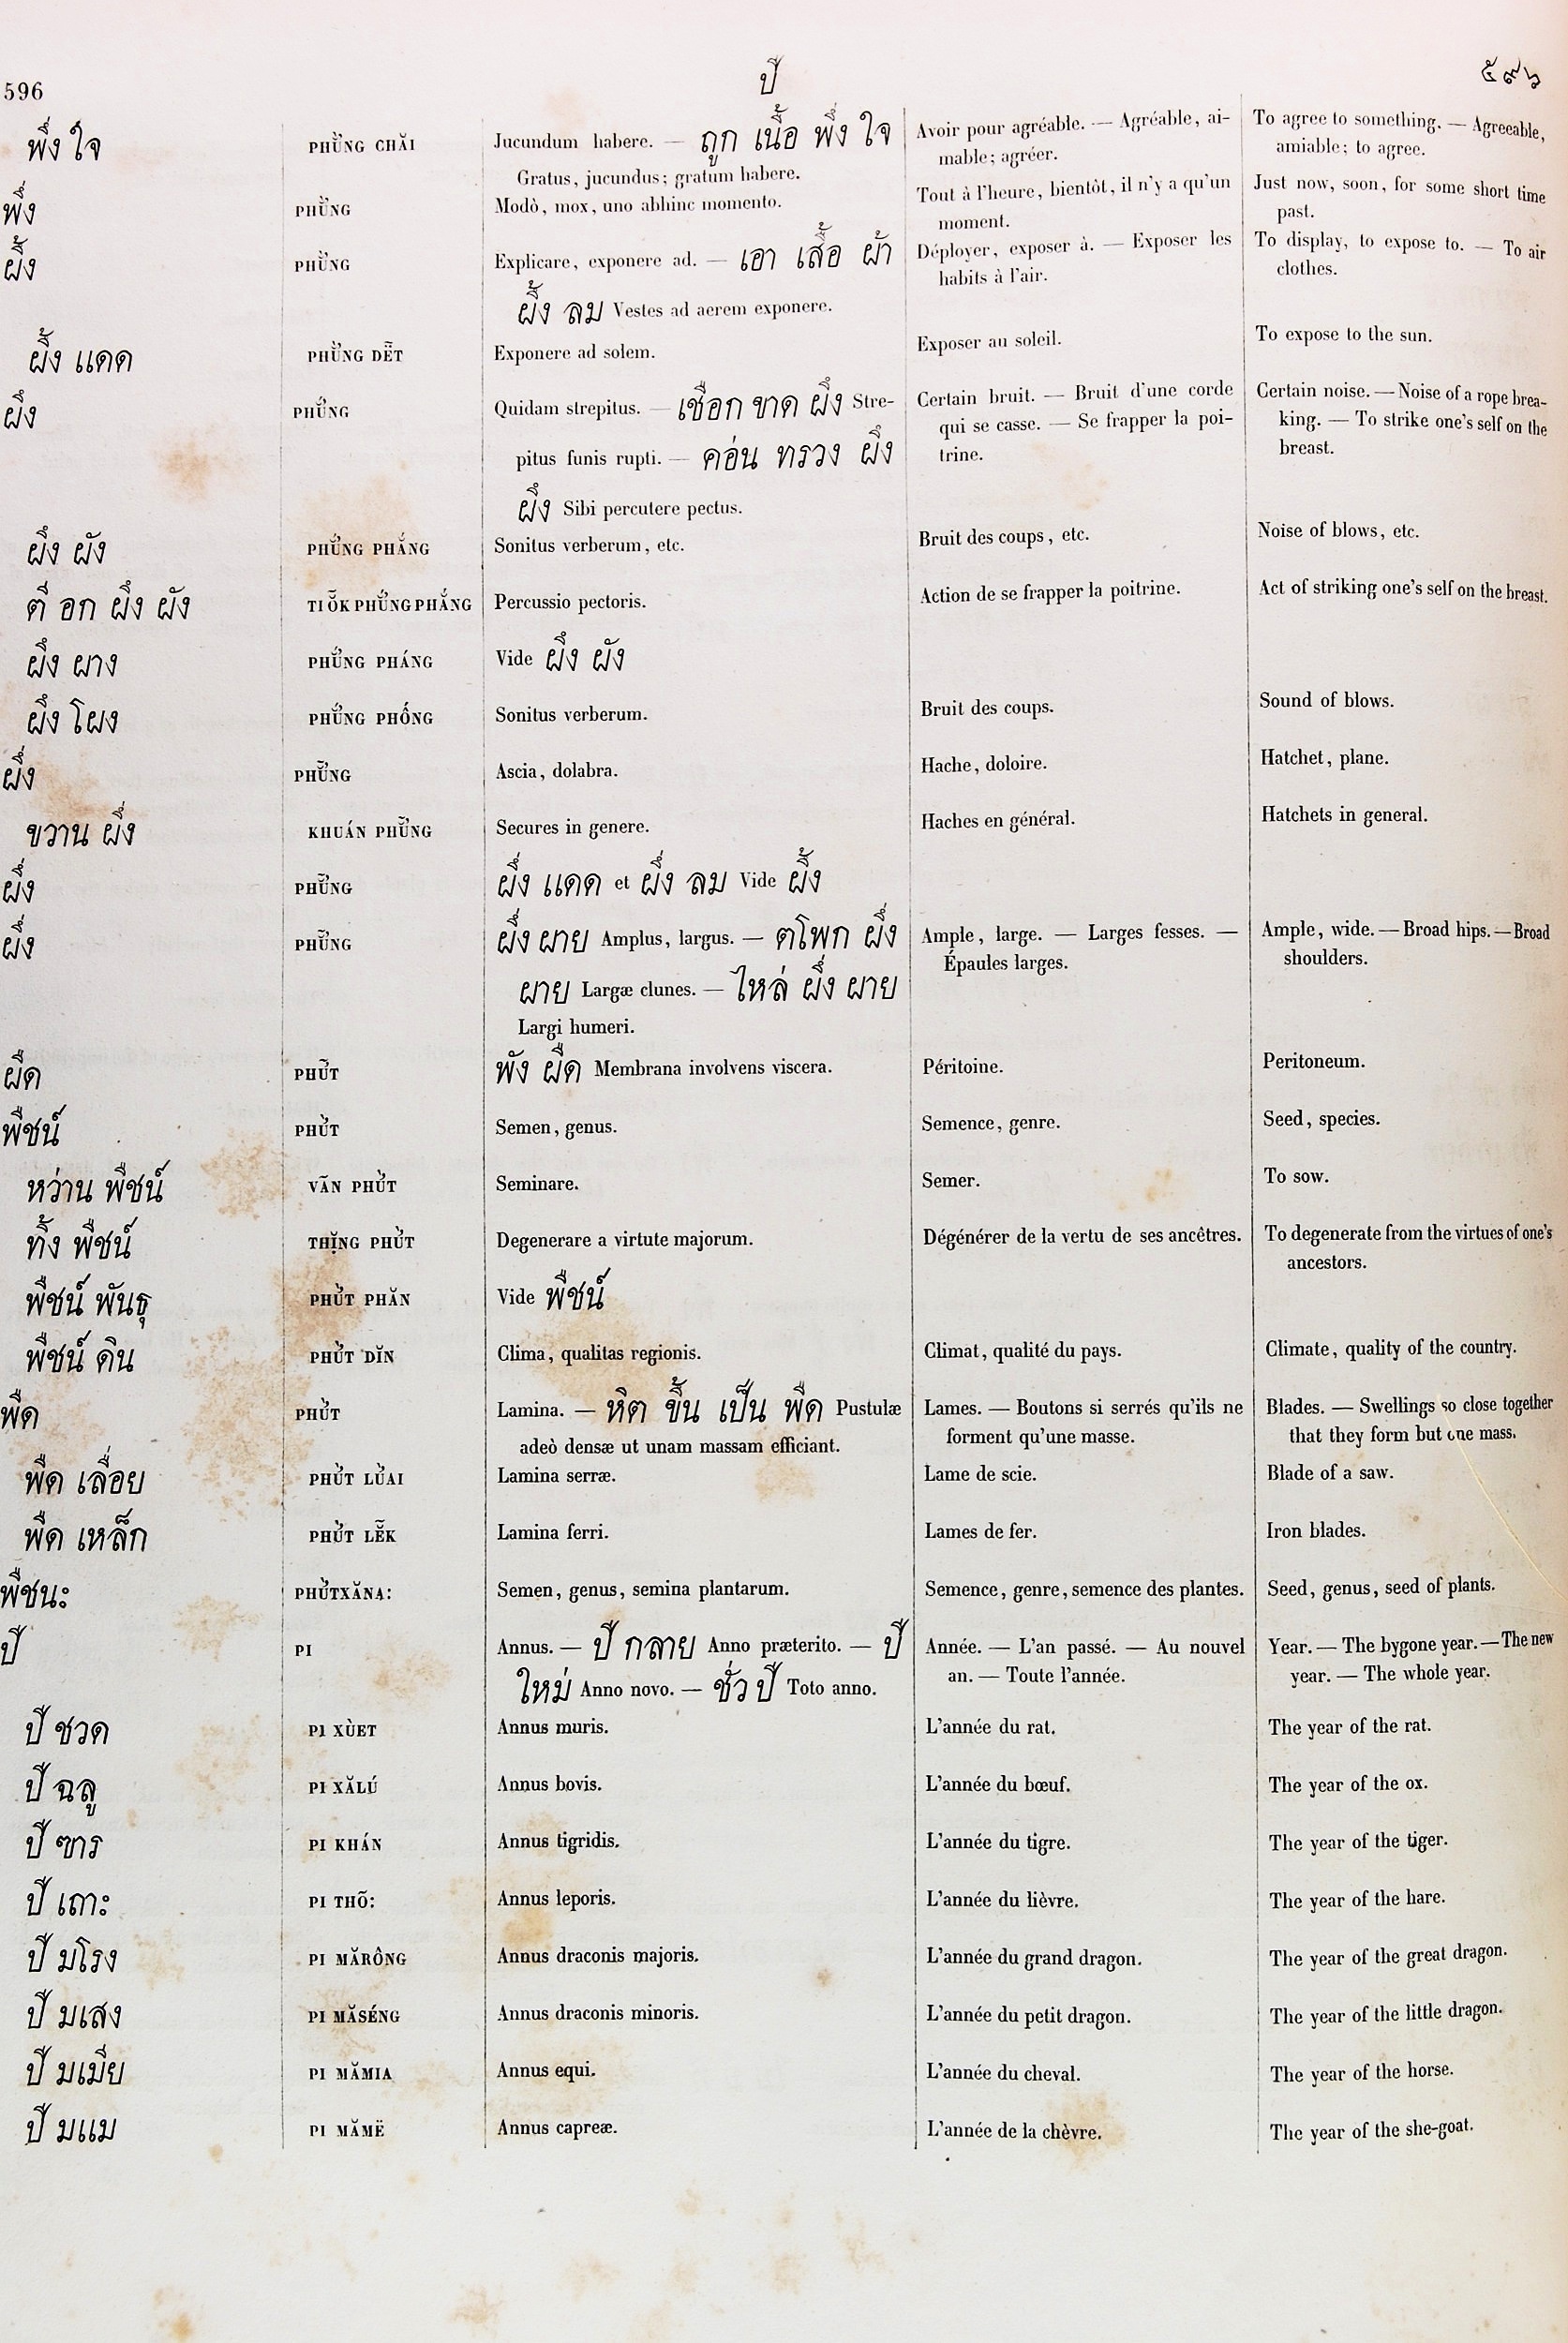 596
ปี
๕๙๖
พึ่ง ใจ
PHŬ̀NG CHĂI
Jucundum habere. — ถูก เนื้อ พึ่ง ใจ
Gratus, jucundus; gratum habere.
Avoir pour agréable. — Agréable, ai-
mable; agréer.
To agree to something. — Agreeable,
amiable; to agree.
พึ่ง
PHŬ̀NG
Modò, mox, uno abhinc momento.
Tout à l'heure, bientôt, il n'y a qu'un
moment.
Just now, soon, for some short time
past.
ผึ้ง
PHŬ̀NG
Explicare, exponere ad. — เอา เสื้อ ผ้า
ผึ้ง ลม Vestes ad aerem exponere.
Déployer, exposer à. — Exposer les
habits à l'air.
To display, to expose to. — To air
clothes.
ผึ้ง แดด
PHŬ̀NG DËT
Exponere ad solem.
Exposer au soleil.
To expose to the sun.
ผึง
PHŬ́NG
Quidam strepitus. — เชือก ขาด ผึง Stre-
pitus funis rupti. — ค่อน ทรวง ผึง
ผึง Sibi percutere pectus.
Certain bruit. — Bruit d'une corde
qui se casse. — Se frapper la poi-
trine.
Certain noise. — Noise of a rope brea-
king. — To strike one's self on the
breast.
ผึง ผัง
PHŬ́NG PHẮNG
Sonitus verberum, etc.
Bruit des coups, etc.
Noise of blows, etc.
ตี อก ผึง ผัง
TI ŎK PHŬ́NG PHẮNG
Percussio pectoris.
Action de se frapper la poitrine.
Act of striking one's self on the breast.
ผึง ผาง
PHŬ́NG PHÁNG
Vide ผึง ผัง
ผึง โผง
PHŬ́NG PHỐNG
Sonitus verberum.
Bruit des coups.
Sound of blows.
ผึ่ง
PHŬ̃NG
Ascia, dolabra.
Hache, doloire.
Hatchet, plane.
ขวาน ผึ่ง
KHUÁN PHŬ̃NG
Secures in genere.
Haches en général.
Hatchets in general.
ผึ่ง
PHŬ̃NG
ผึ่ง แดด et ผึ่ง ลม Vide ผึ้ง
ผึ่ง
PHŬ̃NG
ผึ่ง ผาย Amplus, largus. — ตโพก ผึ่ง
ผาย Largæ clunes. — ไหล่ ผึ่ง ผาย
Largi humeri.
Ample, large. — Larges fesses. —
Épaules larges.
Ample, wide. — Broad hips. — Broad
shoulders.
ผืด
PHŨ'T
พัง ผืด Membrana involvens viscera.
Péritoine.
Peritoneum.
พืชน์
PHỪT
Semen, genus.
Semence, genre.
Seed, species.
หว่าน พืชน์
VÃN PHỪT
Seminare.
Semer.
To sow.
ทิ้ง พืชน์
THĬNG PHỪT
Degenerare a virtute majorum.
Dégénérer de la vertu de ses ancêtres.
To degenerate from the virtues of one's
ancestors.
พืชน์ พันธุ
PHỪT PHĂN
Vide พืชน์
พืชน์ ดิน
PHỪT DĬN
Clima, qualitas regionis.
Climat, qualité du pays.
Climate, quality of the country.
พืด
PHỪT
Lamina. — หิต ขึ้น เป็น พืด Pustulæ
adeò densæ ut unam massam efficiant.
Lames. — Boutons si serrés qu'ils ne
forment qu'une masse.
Blades. — Swellings so close together
that they form but one mass.
พืด เลื่อย
PHỪT LỪAI
Lamina serræ.
Lame de scie.
Blade of a saw.
พืด เหล็ก
PHỪT LẼK
Lamina ferri.
Lames de fer.
Iron blades.
พืชนะ
PHỪTXĂNẠ:
Semen, genus, semina plantarum.
Semence, genre, semence des plantes.
Seed, genus, seed of plants.
ปี
PI
Annus. — ปี กลาย Anno præterito. — ปี
ใหม่ Anno novo. — ชั่ว ปี Toto anno.
Année. — L'an passé. — Au nouvel
an. — Toute l'année.
Year. — The bygone year. — The new
year. — The whole year.
ปี ชวด
PI XÙET
Annus muris.
L'année du rat.
The year of the rat.
ปี ฉลู
PI XĂLÚ
Annus bovis.
L'année du bœuf.
The year of the ox.
ปี ฃาร
PI KHÁN
Annus tigridis.
L'année du tigre.
The year of the tiger.
ปี เถาะ
PI THÕ:
Annus leporis.
L'année du lièvre.
The year of the hare.
ปี มโรง
PI MĂRÔNG
Annus draconis majoris.
L'année du grand dragon.
The year of the great dragon.
ปี มเสง
PI MĂSÉNG
Annus draconis minoris.
L'année du petit dragon.
The year of the little dragon.
ปี มเมีย
PI MĂMIA
Annus equi.
L'année du cheval.
The year of the horse.
ปี มแม
PI MĂMË
Annus capreæ.
L'année de la chèvre.
The year of the she-goat.